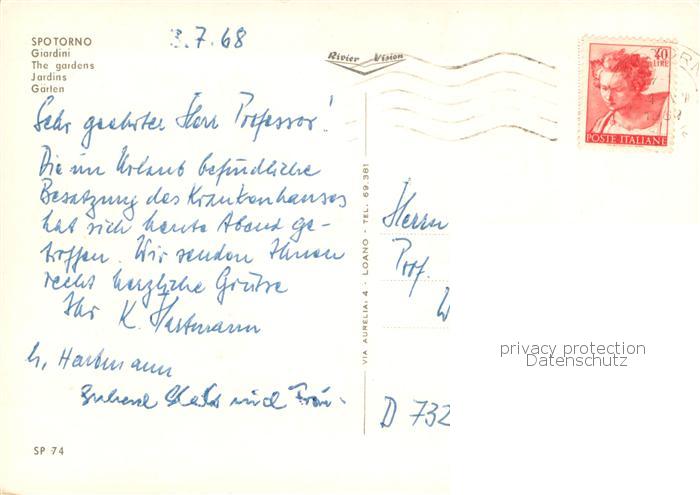 SPOTORNO
Giardini
The gardens
Jardins
Garten
3.7.68
Rivier Vision
40
LIRE
POSTE ITALIANE
Sehr geehrter Herr Professor!
Die im Urlaub befindliche
Besatzung des Krankenhauses
hat sich heute Abend ge-
troffen. Wir senden Ihnen
recht herzliche Grüße
Ihr K. Hartmann
h. Hartmann
und Frau.
VIA AURELIA, 4 - LOANO - TEL. 69.381
Herrn
Prof.
W
D 732
privacy protection
Datenschutz
SP 74